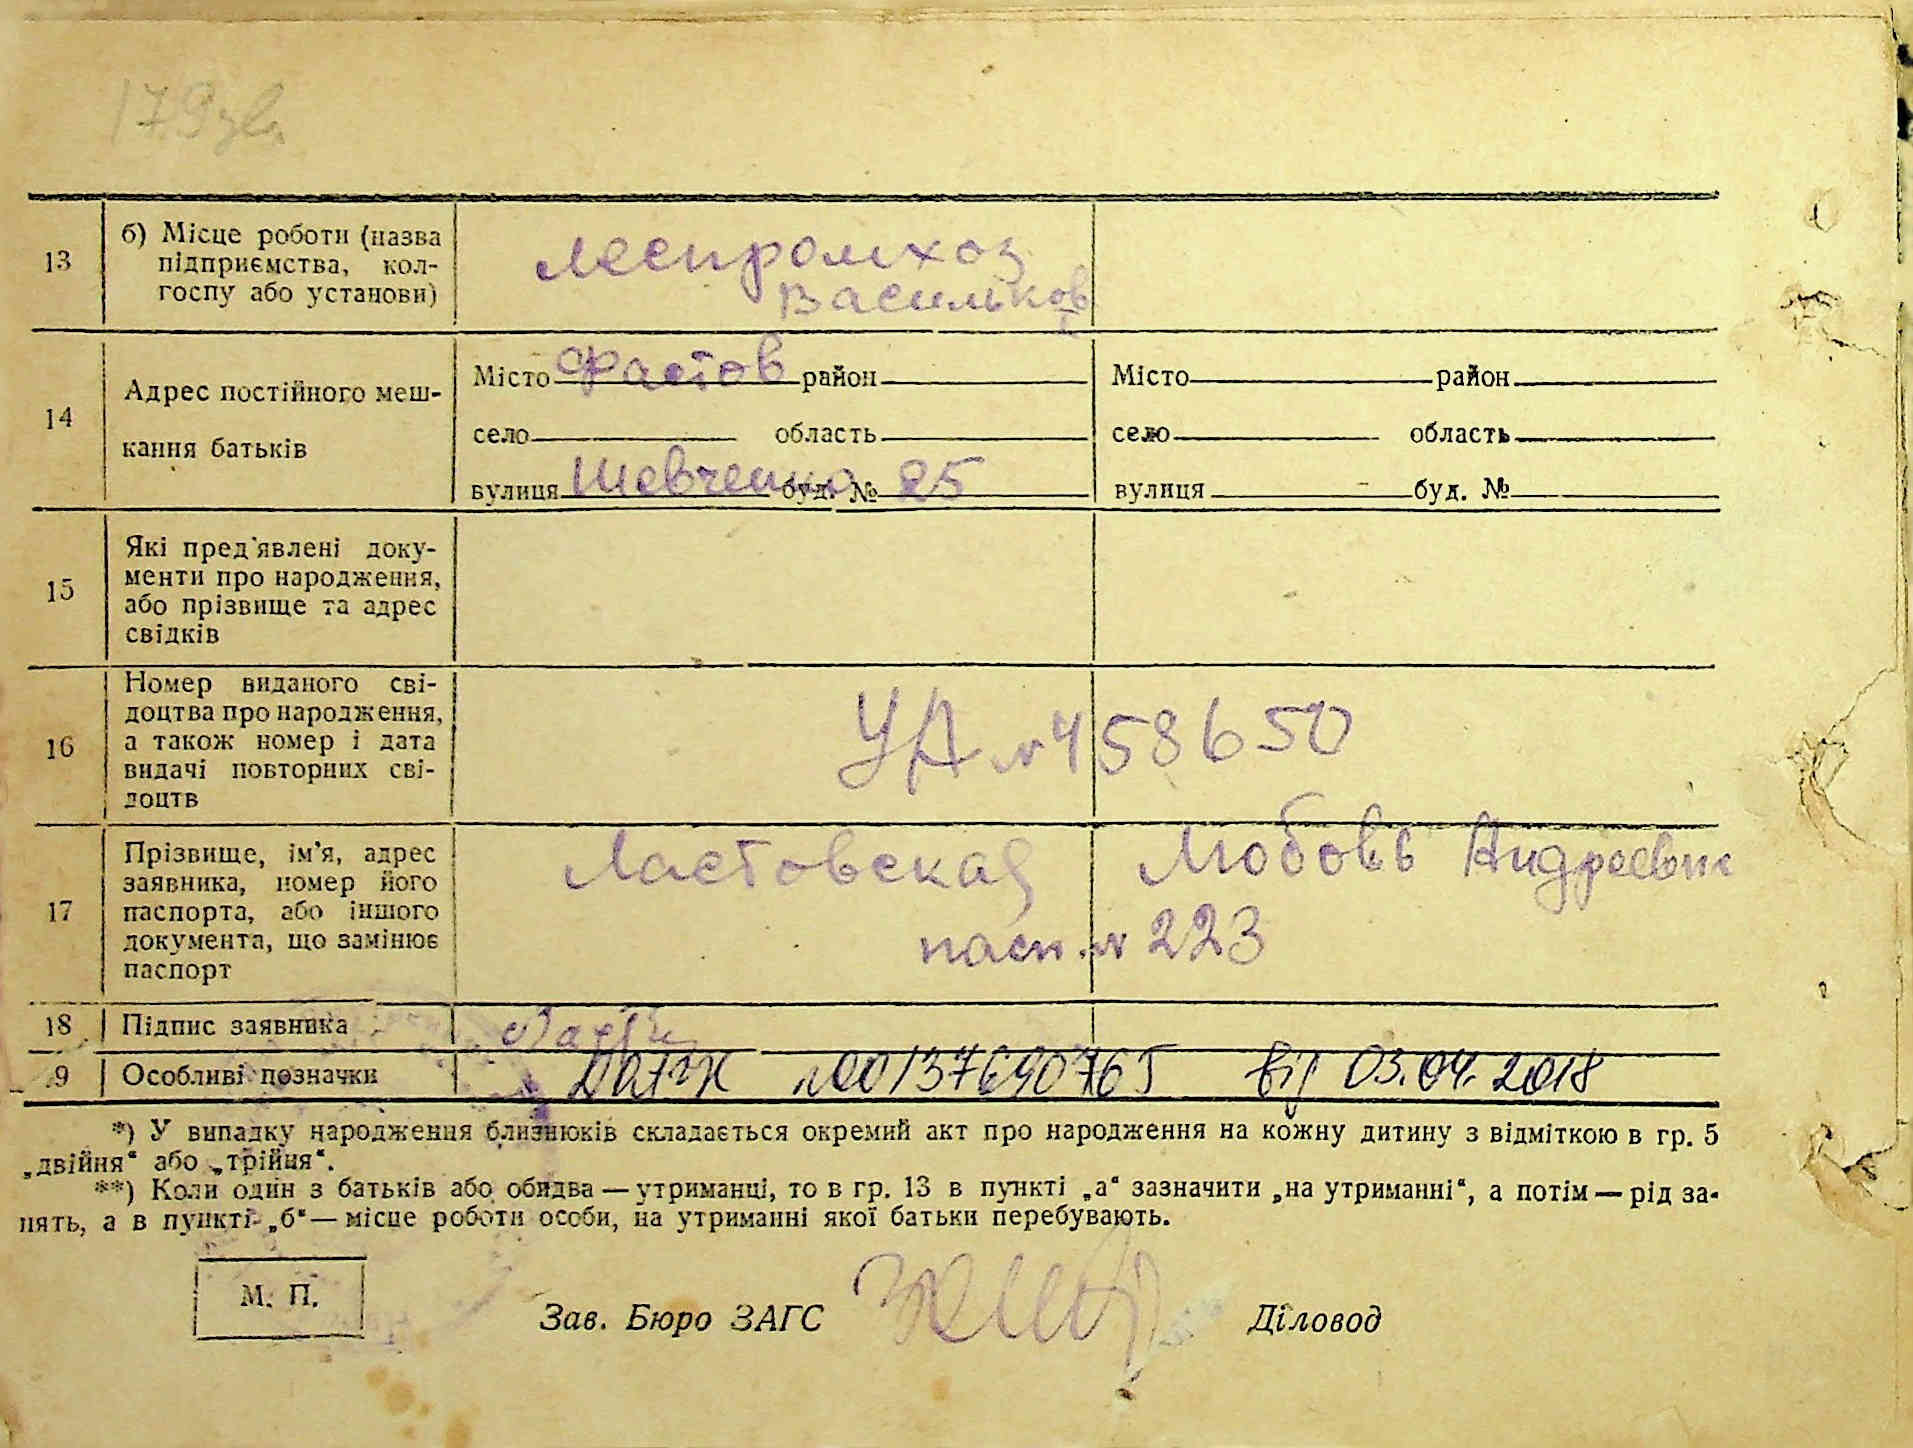 179 зв.
13 б) Місце роботи (назва
підприємства, кол-
госпу або установи)
леспромхоз
Васильков
14 Адрес постійного меш-
кання батьків
Місто Фастов район
село область
вулиця Шевченко буд. № 25
Місто район
село область
вулиця буд. №
15 Які пред'явлені доку-
менти про народження,
або прізвище та адрес
свідків
16 Номер виданого сві-
доцтва про народження,
а також номер і дата
видачі повторних сві-
доцтв
УА № 458650
17 Прізвище, ім'я, адрес
заявника, номер його
паспорта, або іншого
документа, що замінює
паспорт
Ластовская Любовь Андреевна
пасп. № 223
18 Підпис заявника
9 Особливі позначки
№00137690765 від 03.04.2018
*) У випадку народження близнюків складається окремий акт про народження на кожну дитину з відміткою в гр. 5
„двійня“ або „трійня“.
**) Коли один з батьків або обидва — утриманці, то в гр. 13 в пункті „а“ зазначити „на утриманні“, а потім — рід за-
нять, а в пункті „б“ — місце роботи особи, на утриманні якої батьки перебувають.
М. П.
Зав. Бюро ЗАГС Діловод